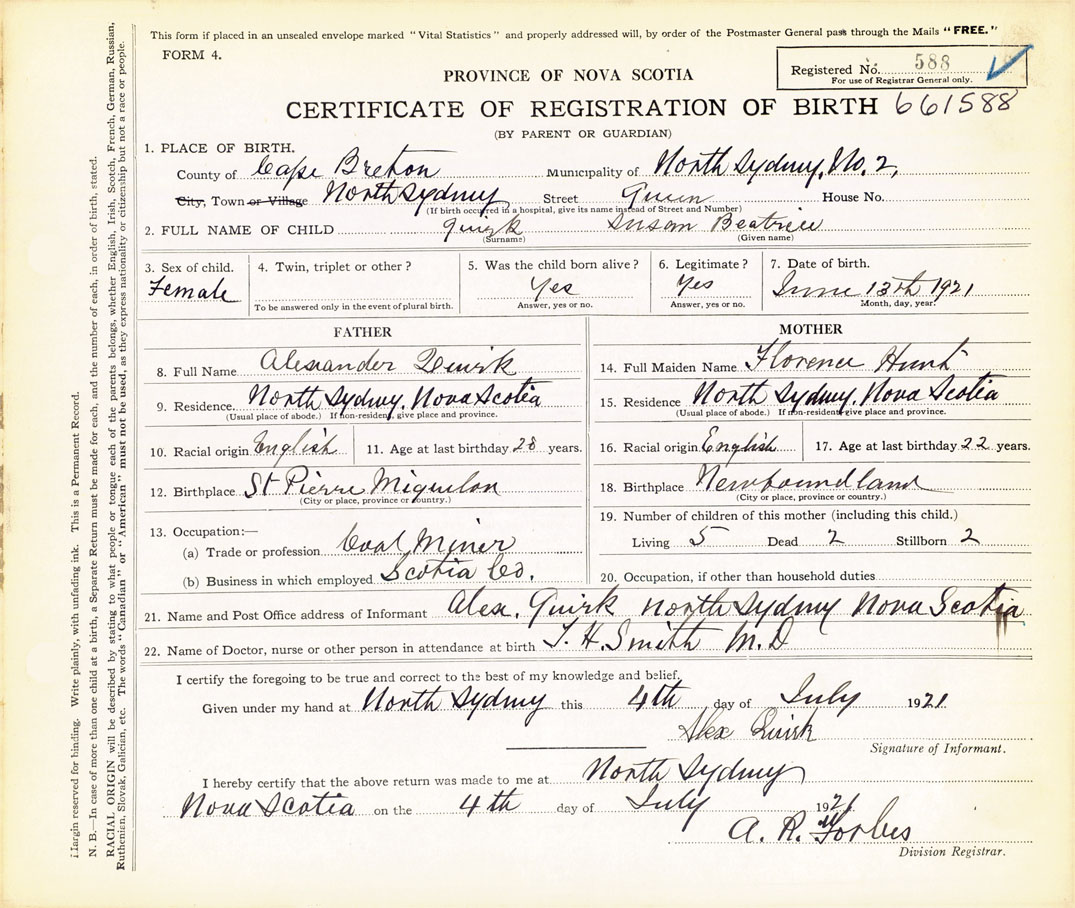 This form if placed in an unsealed envelope marked "Vital Statistics" and properly addressed will, by order of the Postmaster General pass through the Mails "FREE."
FORM 4.
Registered No. 588
For use of Registrar General only.
PROVINCE OF NOVA SCOTIA
CERTIFICATE OF REGISTRATION OF BIRTH 661588
(BY PARENT OR GUARDIAN)
1. PLACE OF BIRTH.
County of Cape Breton Municipality of North Sydney, No. 2,
City, Town or Village North Sydney Street Queen House No.
(If birth occurred in a hospital, give its name instead of Street and Number)
2. FULL NAME OF CHILD Quirk Susan Beatrice
(Surname) (Given name)
3. Sex of child. 4. Twin, triplet or other? 5. Was the child born alive? 6. Legitimate? 7. Date of birth.
Female Yes Yes June 13th 1921
To be answered only in the event of plural birth. Answer, yes or no. Answer, yes or no. Month, day, year.
FATHER
8. Full Name Alexander Quirk
9. Residence. North Sydney, Nova Scotia
(Usual place of abode.) If non-resident, give place and province.
10. Racial origin English 11. Age at last birthday 28 years.
12. Birthplace St Pierre Miquilon
(City or place, province or country.)
13. Occupation:—
(a) Trade or profession Coal Miner
(b) Business in which employed Scotia Co.
MOTHER
14. Full Maiden Name Florence Hunt
15. Residence North Sydney, Nova Scotia
(Usual place of abode.) If non-resident, give place and province.
16. Racial origin English 17. Age at last birthday 22 years.
18. Birthplace Newfoundland
(City or place, province or country.)
19. Number of children of this mother (including this child.)
Living 5 Dead 2 Stillborn 2
20. Occupation, if other than household duties
21. Name and Post Office address of Informant Alex. Quirk North Sydney Nova Scotia
22. Name of Doctor, nurse or other person in attendance at birth T. H. Smith M.D
I certify the foregoing to be true and correct to the best of my knowledge and belief.
Given under my hand at North Sydney this 4th day of July 1921.
Alex Quirk
Signature of Informant.
I hereby certify that the above return was made to me at North Sydney
Nova Scotia on the 4th day of July 1921
A. R. Forbes
Division Registrar.
Margin reserved for binding. Write plainly, with unfading ink. This is a Permanent Record.
N. B.—In case of more than one child at a birth, a Separate Return must be made for each, and the number of each, in order of birth, stated.
RACIAL ORIGIN will be described by stating to what people or tongue each of the parents belongs, whether English, Irish, Scotch, French, German, Russian,
Ruthenian, Slovak, Galician, etc. The words "Canadian" or "American" must not be used, as they express nationality or citizenship but not a race or people.